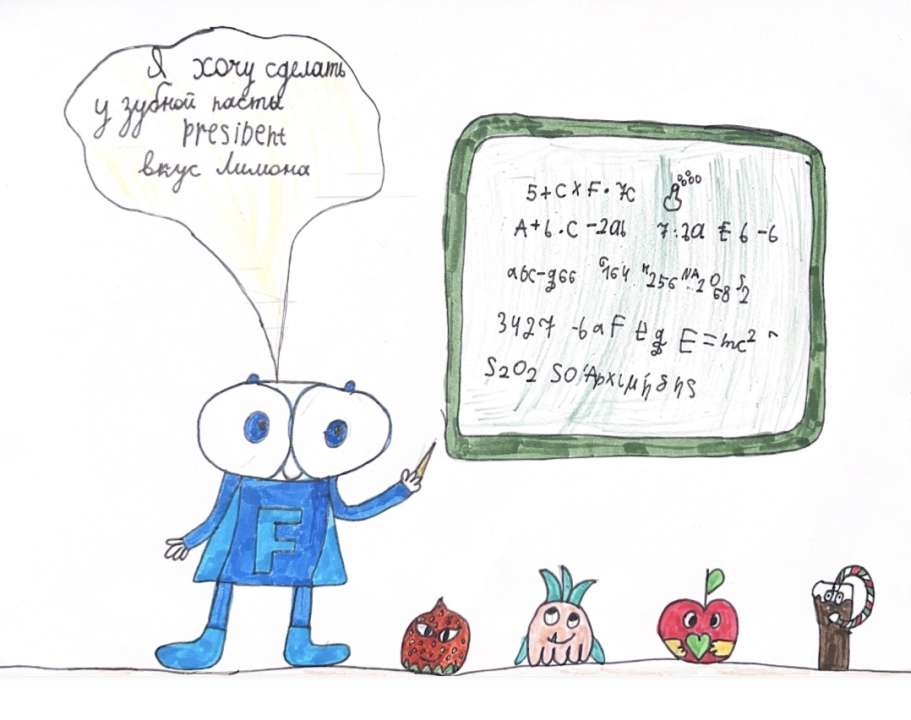 Я хочу сделать
у зубной пасты
president
вкус лимона
5+C×F·7c
A+b·C-2ab 7:2a E 6-6
abc-g66 6164 H256 NA2 O68 S2
3427 -6aF tg E=mc²
S2O2 SO
F